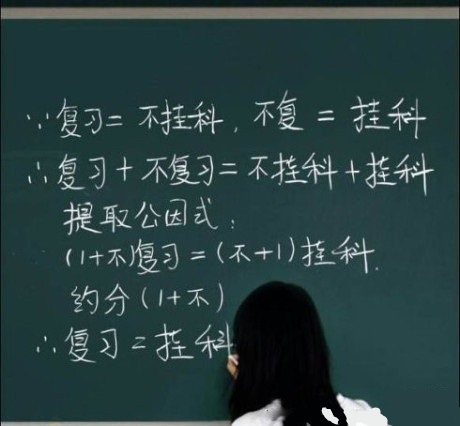 ∵复习=不挂科,不复=挂科
∴复习+不复习=不挂科+挂科
提取公因式:
(1+不)复习=(不+1)挂科.
约分(1+不)
∴复习=挂科